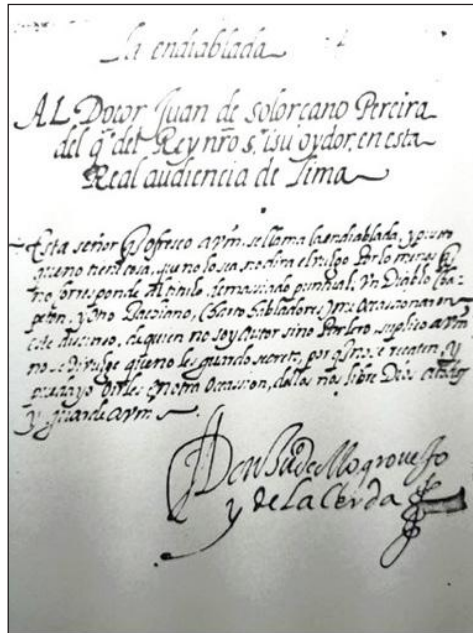 la endiablada
AL Dotor Juan de solorcano Pereira
del q.º del Rey nr̃o s.r i su oydor, en esta
Real audiencia de Lima
Esta señor q̃ ofresco a v.m. se llama la endiablada, y puesto
que no tiene cosa, que no lo sea, no dira el vulgo Por lo menos q̃
no corresponde Al titulo, demassiado puntual, Vn Diablo Cha
peton, y otro Baquiano, (harto habladores) me ocasionaron
este discurso, de quien no soy Autor sino Portero suplico a v.m.
no se divulge que no les guardo secreto, por q̃ no se recaten, y
pueda yo oirles en otra Ocassion, dellos nos libre Dios a todos
y guarde a v.m.
Don Ju.º de Mogrovejo
y de La Cerda